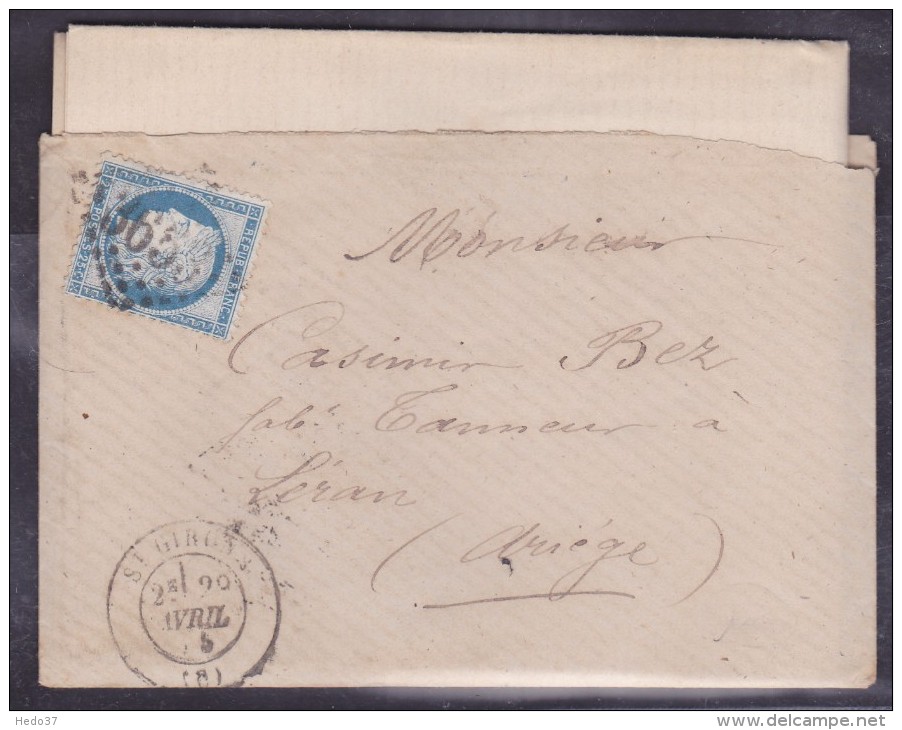 REPUB·FRANC
Monsieur
Casimir Bez
fabt Tanneur à
Léran
(Ariège)
ST GIRONS
2E 29
AVRIL
5
(8)
Hedo37
www.delcampe.net